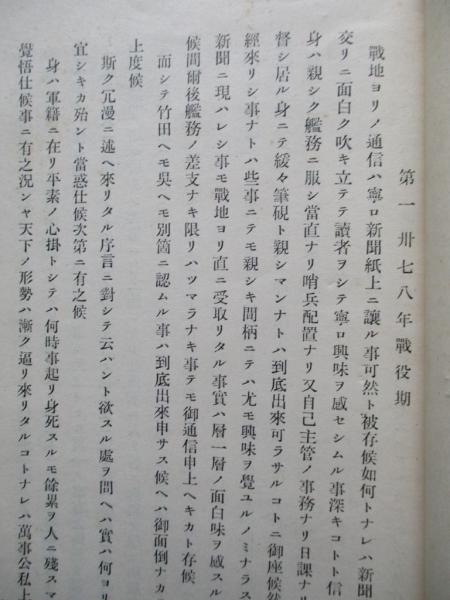 第一 卅七八年戰役期
戰地ヨリノ通信ハ寧ロ新聞紙上ニ讓ル事可然ト被存候如何トナレハ新聞
交リニ面白ク吹キ立テテ讀者ヲシテ寧ロ興味ヲ感セシムル事深キコトト信
身ハ親シク艦務ニ服シ當直ナリ哨兵配置ナリ又自己主管ノ事務ナリ日課ナリ
督シ居ル身ニテ緩々筆硯ト親シマンナトハ到底出來可ラサルコトニ御座候然
經來リシ事ナトハ些事ニテモ親シキ間柄ニテハ尤モ興味ヲ覺ユルノミナラス
新聞ニ現ハレシ事モ戰地ヨリ直ニ受取リタル事實ハ層一層ノ面白味ヲ感スル
候間爾後艦務ノ差支ナキ限リハツマラナキ事テモ御通信申上ヘキカト存候
而シテ竹田ヘモ吳ヘモ別箇ニ認ムル事ハ到底出來申サス候ヘハ御面倒ナカ
上度候
斯ク冗漫ニ述ヘ來リタル序言ニ對シテ云ハント欲スル處ヲ問ヘハ實ハ何ヨリ
宜シキカ殆ント當惑仕候次第ニ有之候
身ハ軍籍ニ在リ平素ノ心掛トシテハ何時事起リ身死スルモ餘累ヲ人ニ殘スマ
覺悟仕候事ニ有之況ンヤ天下ノ形勢ハ漸ク逼リ來リタルコトナレハ萬事公私上